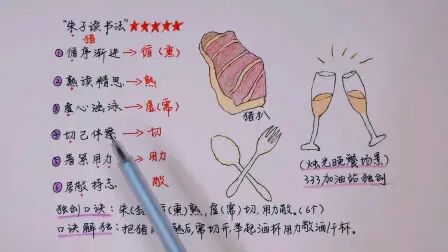 "朱子读书法"★★★★★
猪
①循序渐进→循(熏)
②熟读精思→熟
③虚心涵泳→虚(需)
④切己体察→切
⑤着紧用力→用力
⑥居敬持志 敬
猪扒
(烛光晚餐场景)
333加油站独创
独创口诀:朱( (熏)熟,虚(需)切,用力敬。(6个)
口诀解独:把猪 熟后,需切开,举起酒杯用力敬酒/干杯。